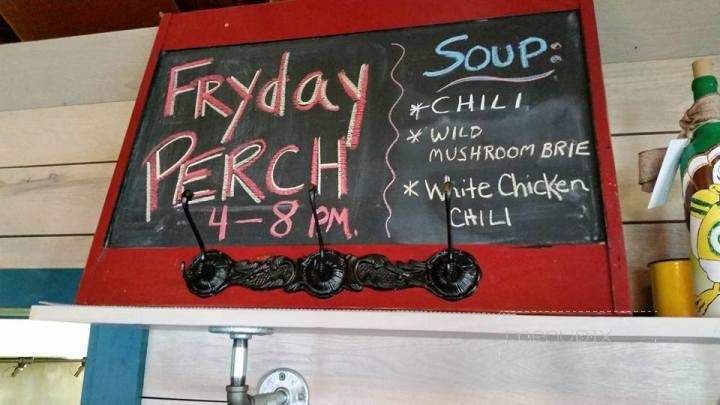 FRyday
PERCH
4-8 PM.
SOUP:
* CHILI
* WILD
MUSHROOM BRIE
* White Chicken
CHILI
menupix